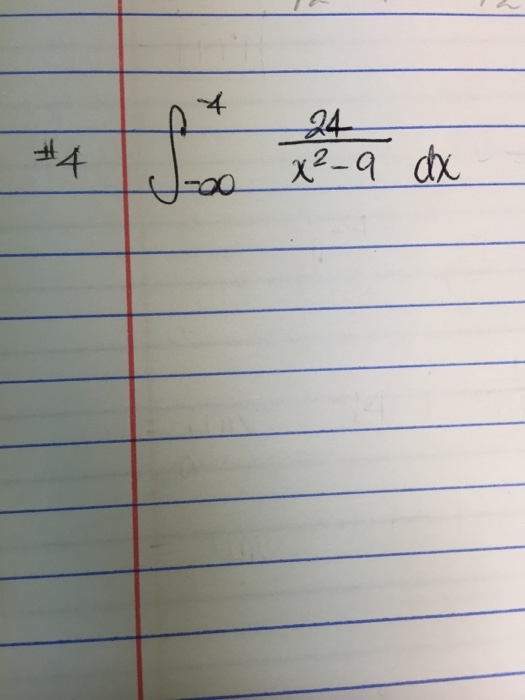 #4 ∫_{-∞}^{-4} \frac{24}{x²-9} dx